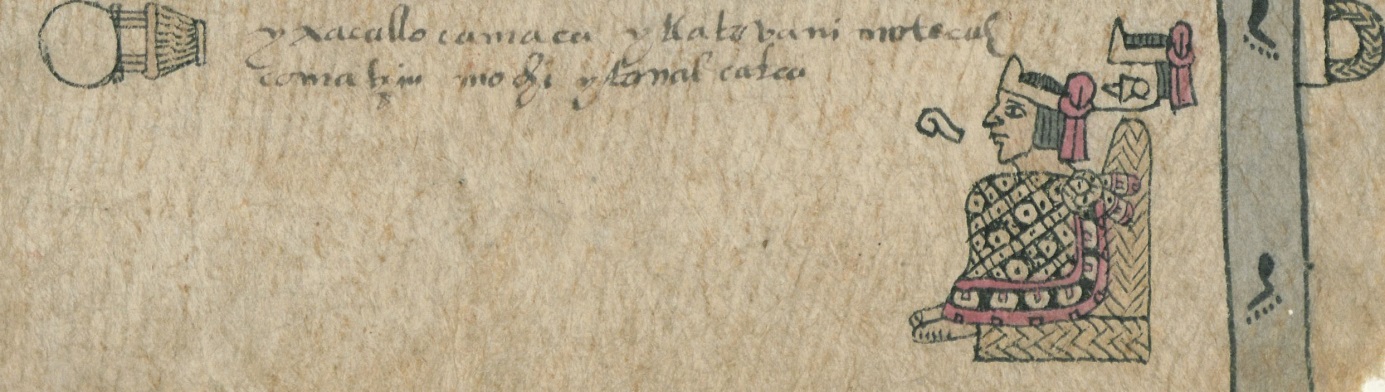 yxacallo camaca ytlatovani motecuҫ
comatzin mochi ytonal catca